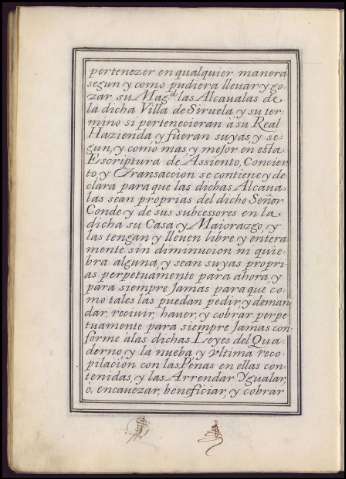 pertenezer en qualquier manera
segun y como pudiera lleuar y go-
zar su Magd. las Alcaualas de
la dicha Villa de Siruela y su ter-
mino si pertenecieran a su Real
Hazienda y fueran suyas y se-
gun, y como mas y mejor en esta
Escriptura de Assiento, Concier-
to y Transaccion se contiene y de-
clara para que las dichas Alcaua-
las sean proprias del dicho Señor
Conde y de sus subcessores en la
dicha su Casa y Maiorazgo, y
las tengan y lleuen libre y entera-
mente sin diminucion ni quie-
bra alguna, y sean suyas propri-
as perpetuamente para ahora, y
para siempre Jamas para que co-
mo tales las puedan pedir, y deman-
dar, reciuir, hauer, y cobrar perpe-
tuamente para siempre Jamas con-
forme a las dichas Leyes del Qua-
derno, y la nueba y vltima reco-
pilacion con las Penas en ellas con-
tenidas, y las Arrendar Ygualar,
o, encauezar, beneficiar, y cobrar